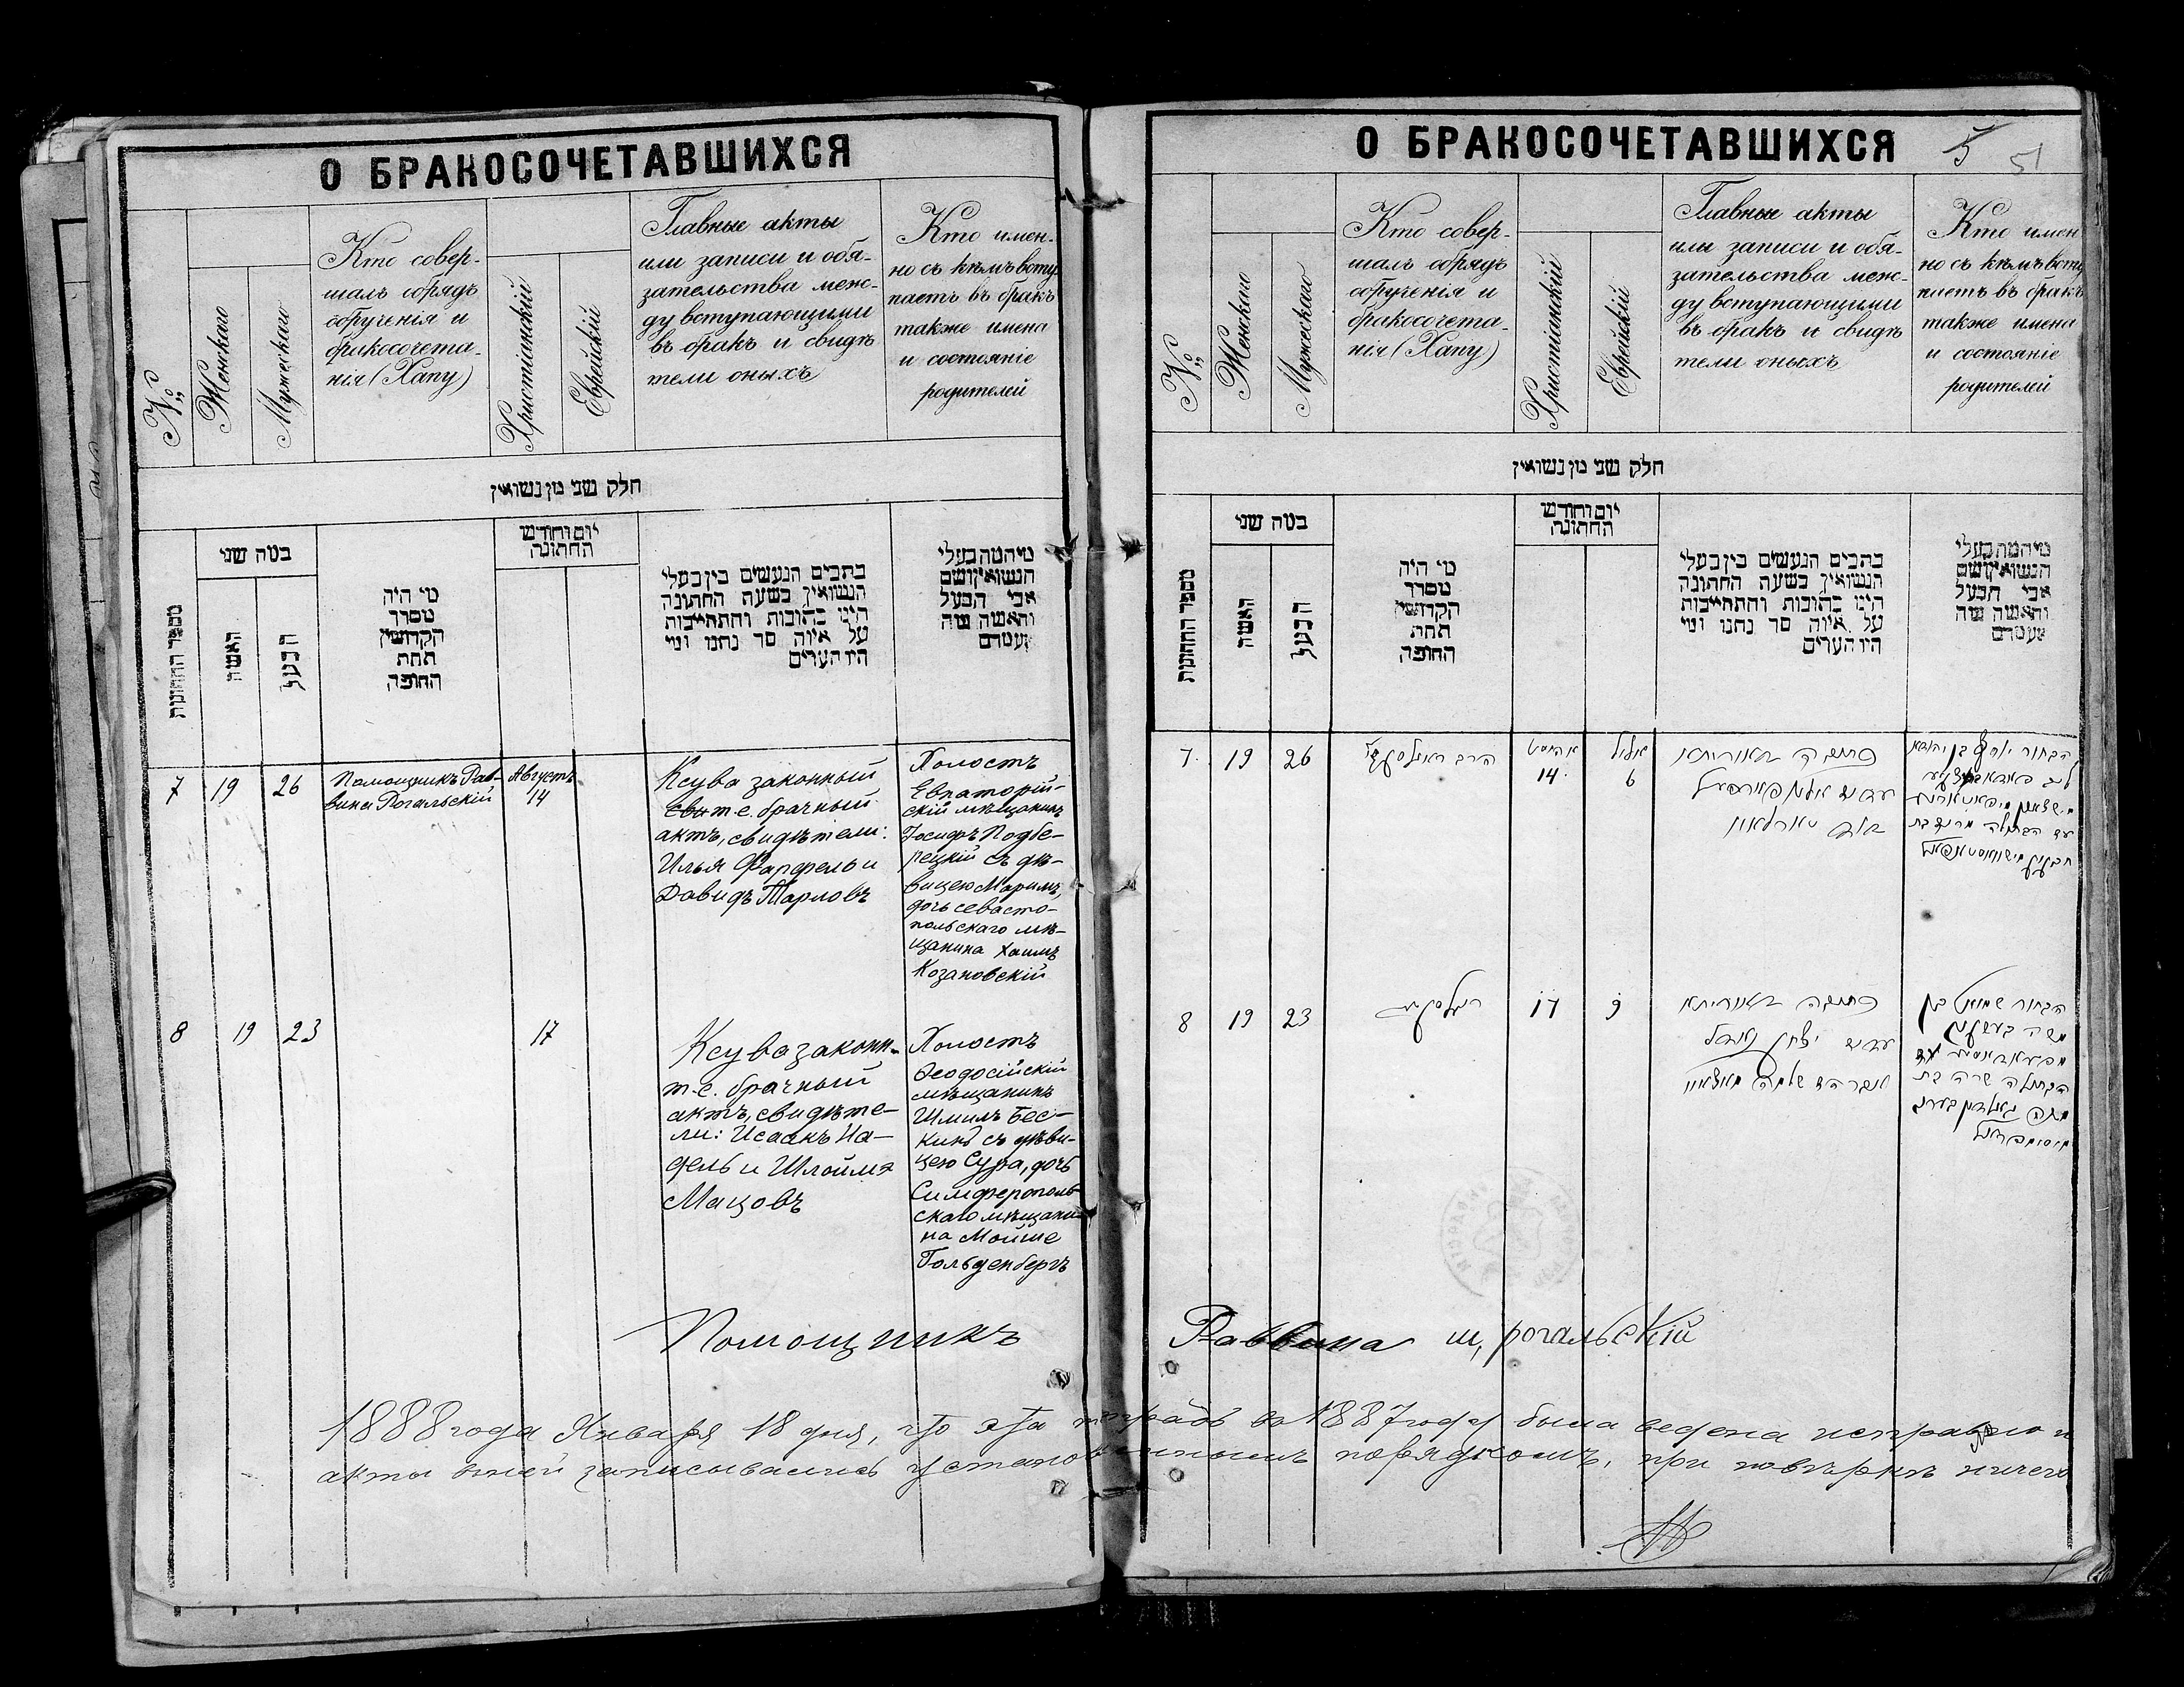 О БРАКОСОЧЕТАВШИХСЯ
№
Женскаго
Мужескаго
Кто совер-
шалъ обрядъ
обрученія и
бракосочета-
нія (Хапу)
Христіанскій
Еврейскій
Главные акты
или записи и обя-
зательства меж-
ду вступающими
въ бракъ и свидѣ
тели оныхъ
Кто имен-
но съ кѣмъ всту
паетъ въ бракъ
также имена
и состояніе
родителей
חלק שני מן נשואין
מספר החתונות
כמה שני
האשה
הבעל
מי היה
מסדר
הקדושין
תחת
החופה
יום וחודש
החתונה
כתבים הנעשים בין בעלי
הנשואין בשעת החתונה
היינו כתובות והתחייבות
על איזה סך נתנו ומי
היו העדים
מי המה בעלי
הנשואין ושם
אבי הבעל
והאשה ומה
מעמדם
7
19
26
Помощникъ Рав-
вина Рогальскій
Августъ
14
Ксува законный
т.е. брачный
актъ, свидѣтели:
Илья Фарфель и
Давидъ Тарловъ
Холостъ
Евпаторій-
скій мѣщанинъ
Іосифъ Подбе-
рецкій съ дѣ-
вицею Маримъ,
дочь севасто-
польскаго мѣ-
щанина Хаимъ
Козановскій
8
19
23
17
Ксува законн-
т.е. брачный
актъ, свидѣте-
ли: Исаакъ На-
дель и Шлойма
Мацовъ
Холостъ
Ѳеодосійскій
мѣщанинъ
Шмиль Бес-
кинъ съ дѣви-
цею Сура, дочь
Симферополь-
скаго мѣщани-
на Мойше
Гольденбергъ
О БРАКОСОЧЕТАВШИХСЯ
5 51
№
Женскаго
Мужескаго
Кто совер-
шалъ обрядъ
обрученія и
бракосочета-
нія (Хапу)
Христіанскій
Еврейскій
Главные акты
или записи и обя-
зательства меж-
ду вступающими
въ бракъ и свидѣ
тели оныхъ
Кто имен
но съ кѣмъ всту
паетъ въ бракъ
также имена
и состояніе
родителей
חלק שני מן נשואין
מספר החתונות
כמה שני
האשה
הבעל
מי היה
מסדר
הקדושין
תחת
החופה
יום וחודש
החתונה
כתבים הנעשים בין בעלי
הנשואין בשעת החתונה
היינו כתובות והתחייבות
על איזה סך נתנו ומי
היו העדים
מי המה בעלי
הנשואין ושם
אבי הבעל
והאשה ומה
מעמדם
7
19
26
הרב
14
אלול
6
כתובה דאורייתא
הבחור יוסף בן יהודא
8
19
23
17
9
כתובה דאורייתא
הבחור שמואל בן
משה
הבתולה שרה בת
Помощникъ Раввина Ш, рогальскій
1888 года Января 18 дня, что эта тетрадь въ 1887 году была ведена исправно и
акты в ней записывались установленнымъ порядкомъ, при повѣркѣ ничего